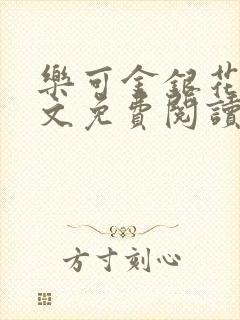 樂可金銀花
文免費閱讀
方寸刻心